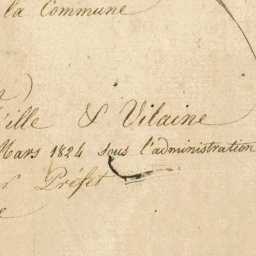 la Commune
ille & Vilaine
Mars 1824 sous l'administration
r Préfet
e